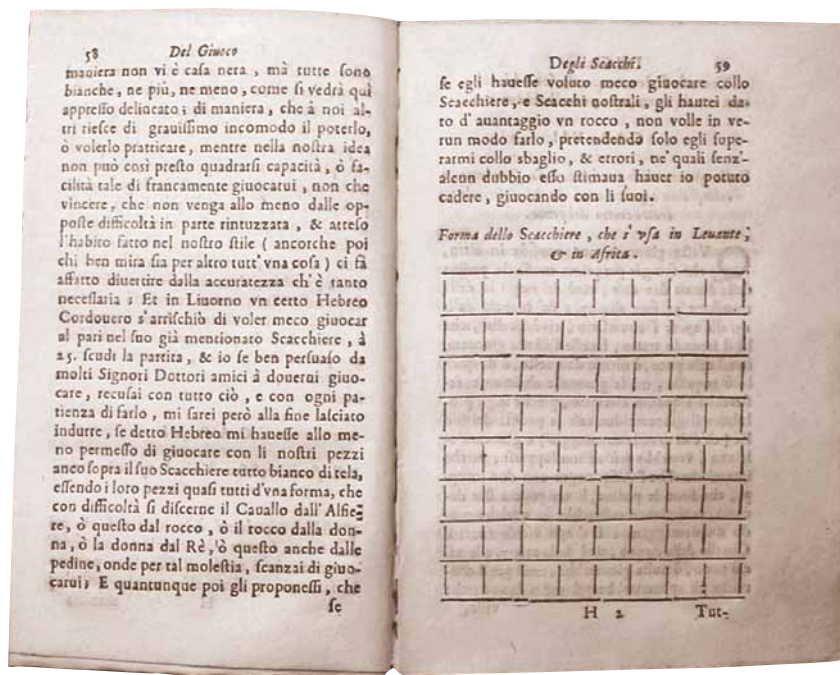 58 Del Giuoco
maniera non vi è casa nera , mà tutte sono
bianche, ne più, ne meno, come si vedrà quì
appresso delineato; di maniera, che à noi al-
tri riesce di grauissimo incomodo il poterlo,
ò volerlo pratticare, mentre nella nostra idea
non può così presto quadrarsi capacità, ò fa-
cilità tale di francamente giuocarui, non che
vincere, che non venga allo meno dalle op-
poste difficoltà in parte rintuzzata , & atteso
l'habito fatto nel nostro stile ( ancorche poi
chi ben mira sia per altro tutt' vna cosa ) ci fà
affatto diuertire dalla accuratezza ch'è tanto
necessaria ; Et in Liuorno vn certo Hebreo
Cordouero s'arrischiò di voler meco giuocar
al pari nel suo già mentionato Scacchiere , à
25. scudi la partita, & io se ben persuaso da
molti Signori Dottori amici à douerui giuo-
care, recusai con tutto ciò , e con ogni pa-
tienza di farlo , mi sarei però alla fine lasciato
indurre, se detto Hebreo mi hauesse allo me-
no permesso di giuocare con li nostri pezzi
anco sopra il suo Scacchiere tutto bianco di tela,
essendi i loro pezzi quasi tutti d'vna forma, che
con difficoltà si discerne il Cauallo dall' Alfie-
re, ò questo dal rocco , ò il rocco dalla don-
na, ò la donna dal Rè, ò questo anche dalle
pedine, onde per tal molestia, scanzai di giuo-
carui; E quantunque poi gli proponessi , che
se
Degli Scacchi. 59
se egli hauesse voluto meco giuocare collo
Scacchiere, e Scacchi nostrali, gli haurei da-
to d' auantaggio vn rocco , non volle in ve-
run modo farlo, pretendendo solo egli supe-
rarmi collo sbaglio, & errori, ne' quali senz'-
alcun dubbio esso stimaua hauer io potuto
cadere, giuocando con li suoi.
Forma dello Scacchiere , che s' vsa in Leuante,
& in Africa .
H 2 Tut-